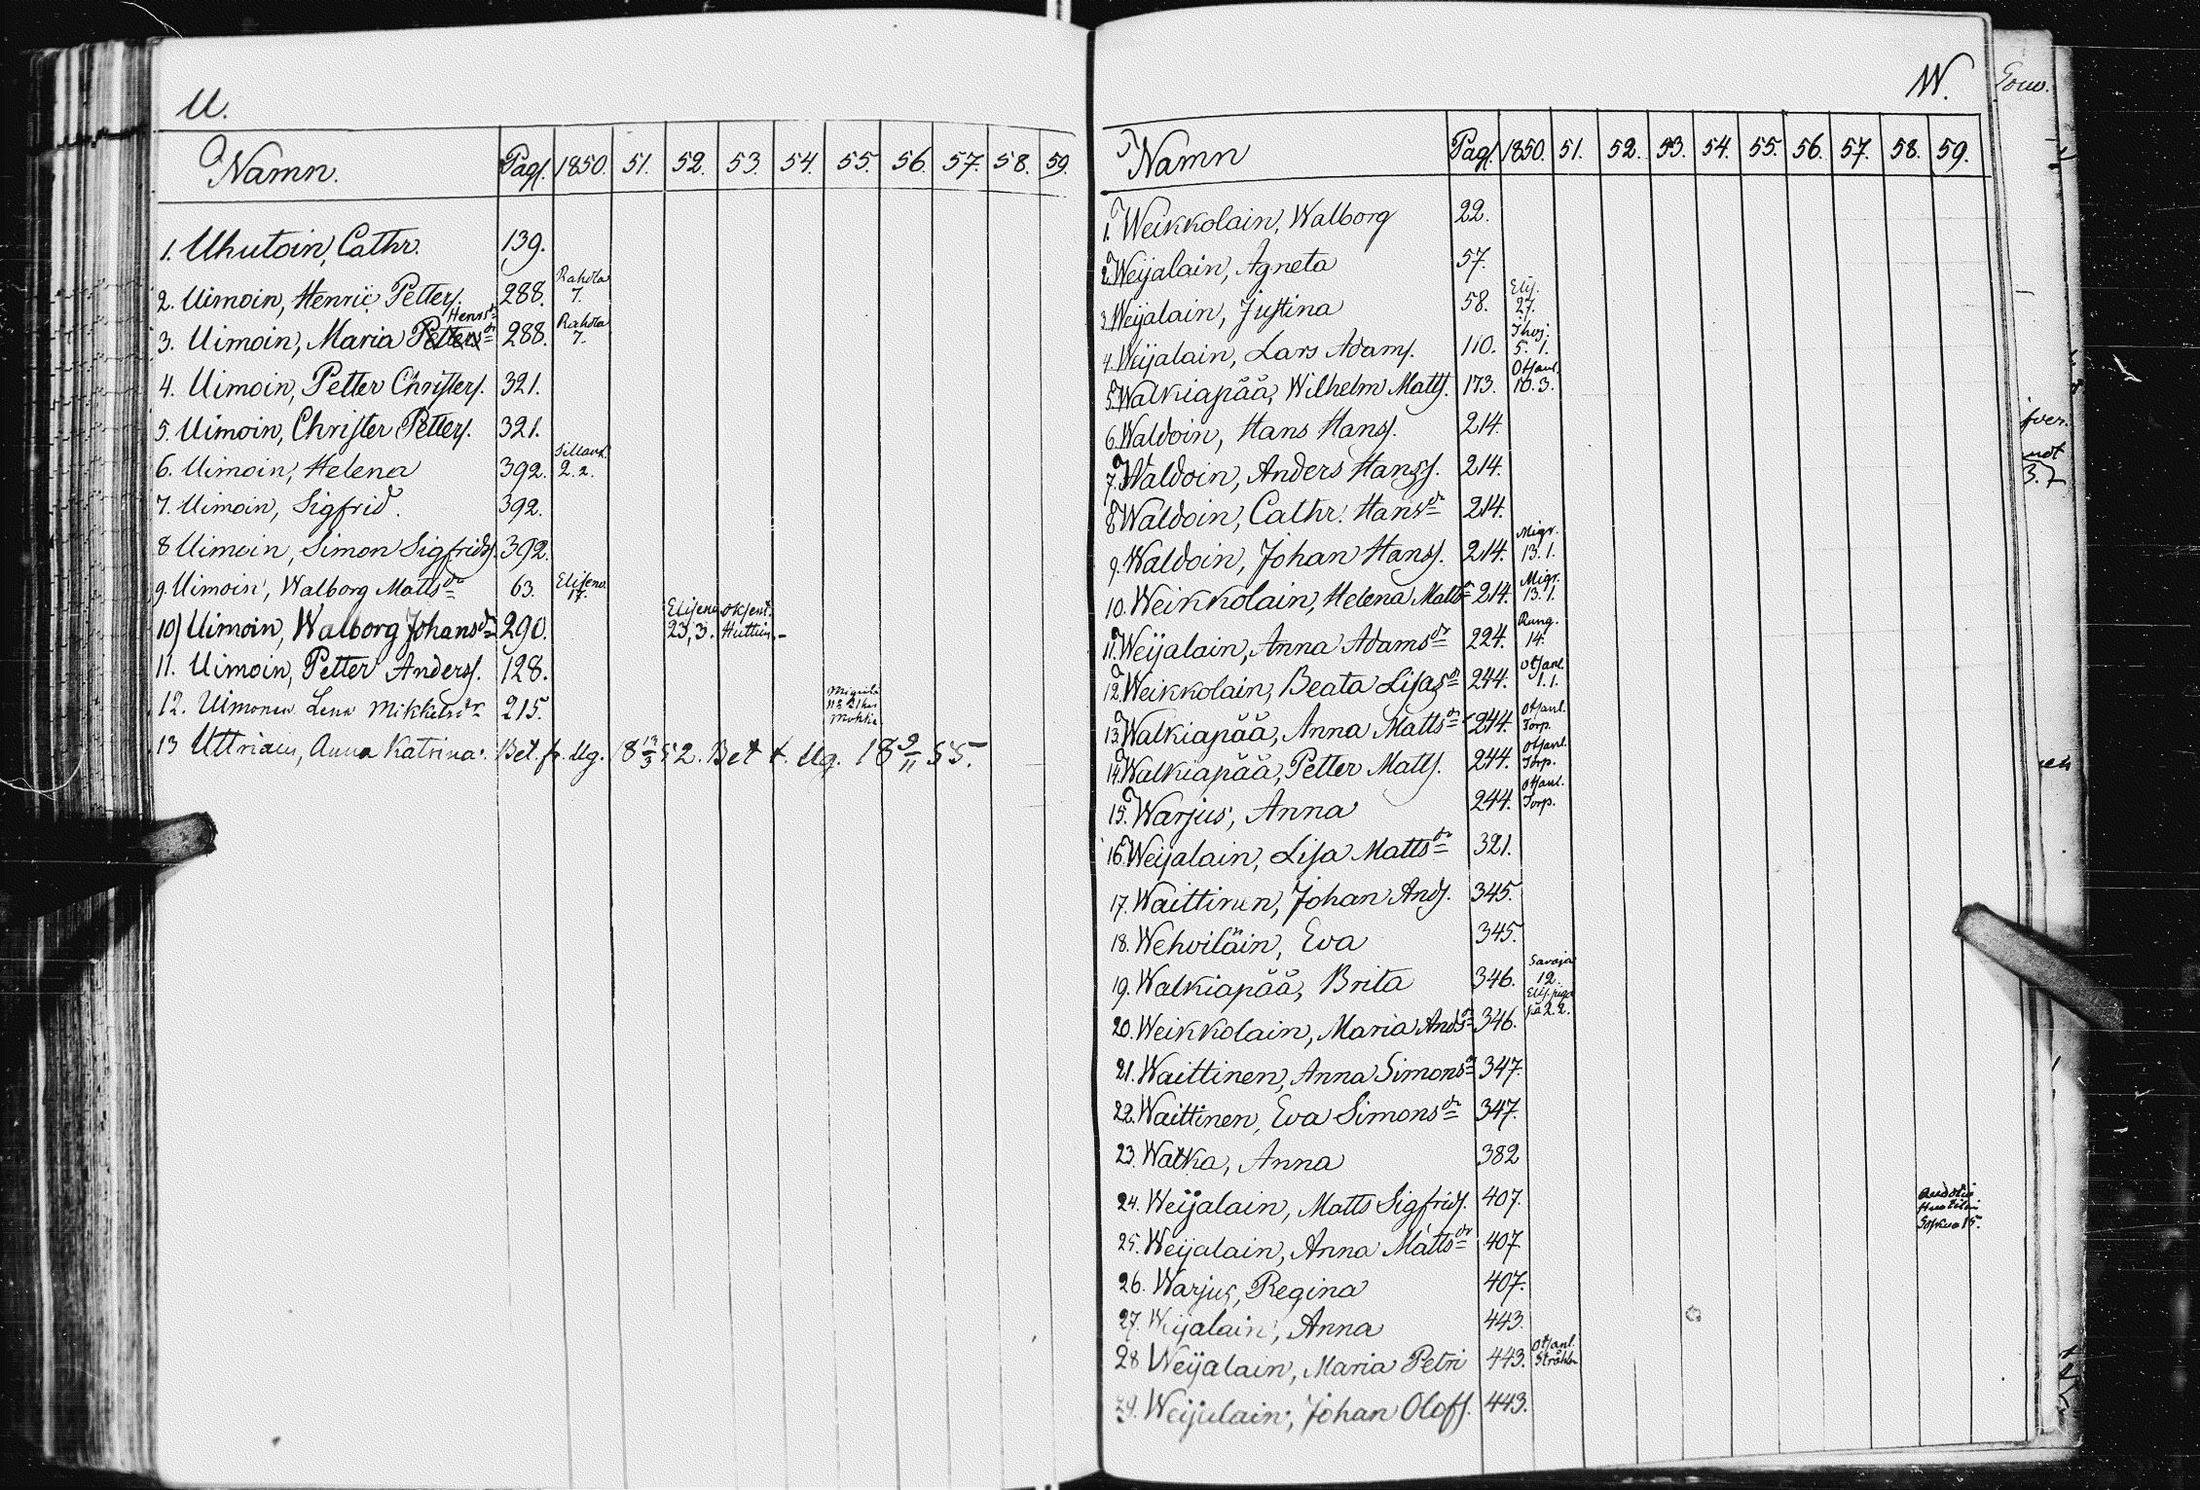 U.
Namn. Pag. 1850. 51. 52. 53. 54. 55. 56. 57. 58. 59.
1. Uhutoin, Cathr. 139.
2. Uimoin, Henric Petters. 288. Rahola 7.
Henrsdr
3. Uimoin, Maria Pettersdr 288. Rahola 7.
4. Uimoin, Petter Christers. 321.
5. Uimoin, Christer Petters. 321.
6. Uimoin, Helena 392. 2.2.
7. Uimoin, Sigfrid. 392.
8 Uimoin, Simon Sigfrids. 392.
9. Uimoin, Walborg Mattsdr 63. 17.
10) Uimoin, Walborg Johansdr 290. 23,3.
11. Uimoin, Petter Anders. 128.
12. Uimonen Lena Mikkelsdr 215.
13 Uttriain, Anna Katrina. Bet. fr. Ug. 18 13/3 52. Bet t. Ug. 18 9/11 55.
W.
Namn Pag. 1850. 51. 52. 53. 54. 55. 56. 57. 58. 59.
1. Weikkolain, Walborg 22.
2. Weijalain, Agneta 57.
3. Weijalain, Justina 58. Elis. 27.
4 Weijalain, Lars Adams. 110. 5. 1.
5. Walkiapää, Wilhelm Matts. 173. Otsanl. 10.3.
6. Waldoin, Hans Hanss. 214.
7. Waldoin, Anders Hanss. 214.
8 Waldoin, Cathr. Hansdr 214.
9. Waldoin, Johan Hanss. 214. Migr. 13.1.
10. Weikkolain, Helena Mattsdr 214. Migr. 13.1.
11. Weijalain, Anna Adamsdr 224. Rang. 14.
12. Weikkolain, Beata Lisasdr 244. Otsanl. 1.1.
13. Walkiapää, Anna Mattsdr 244. Otsanl. Torp.
14. Walkiapää, Petter Matts. 244. Otsanl. Torp.
15. Warjus, Anna 244. Otsanl. Torp.
16. Weijalain, Lisa Mattsdr 321.
17. Waittinen, Johan Ands. 345.
18. Wehviläin, Eva 345.
19. Walkiapää, Brita 346. 12.
20. Weikkolain, Maria Andsdr 346. 2.2.
21. Waittinen, Anna Simonsdr 347.
22. Waittinen, Eva Simonsdr 347.
23. Watka, Anna 382
24. Weijalain, Matts Sigfrids. 407.
25. Weijalain, Anna Mattsdr 407.
26. Warjus, Regina 407.
27. Weijalain, Anna 443.
28 Weijalain, Maria Petri 443. Otsanl.
29. Weijalain, Johan Olofs. 443.